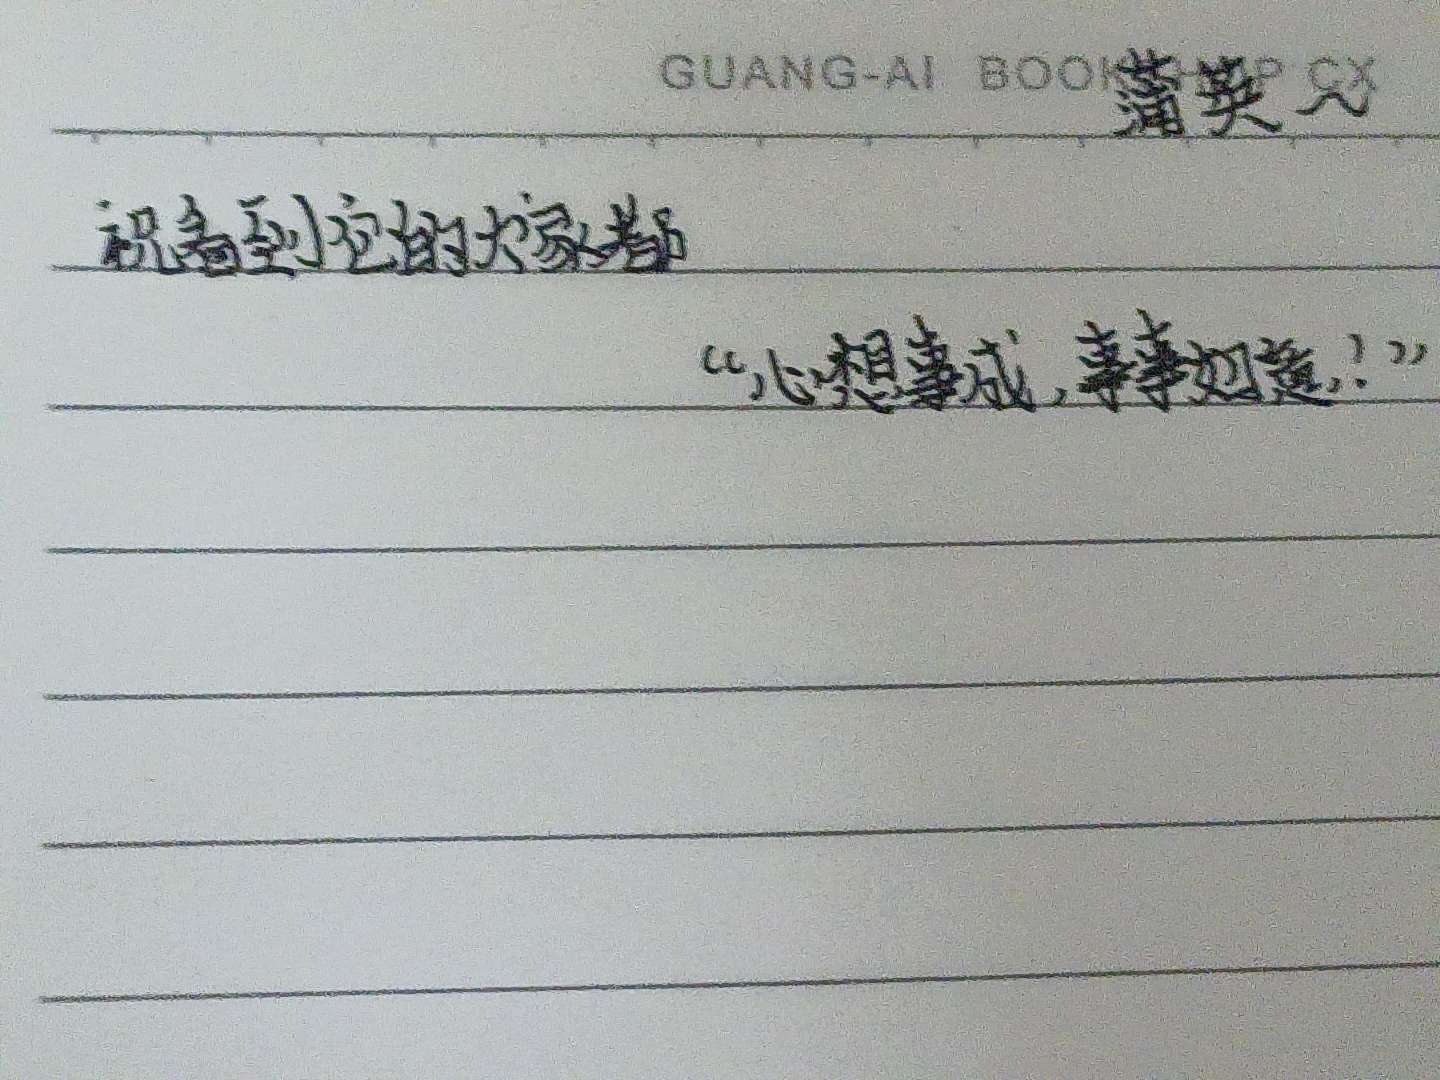 GUANG-AI BOOKSHOP CX
蒲英兮
祝看到它的大家都
“心想事成,事事如意!”